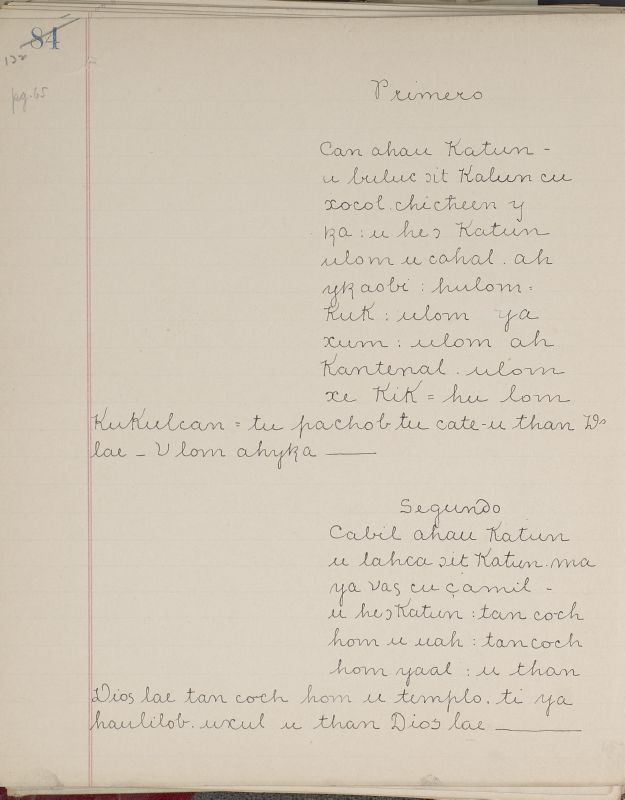 84
132
pg. 65
Primero
Can ahau Katun -
u buluc ɔit Katun cu
xocol. chicheen y
ꝁa : u heɔ Katun
ulom u cahal. ah
yꝁaobi : hulom =
Kuk : ulom ya
xum : ulom ah
Kantenal. ulom
xe KiK = hu lom
KuKulcan = tu pachob tu cate-u than Ds
lae - V lom ahyꝁa
Segundo
Cabil ahau Katun
u lahca ɔit Katun. ma
ya vaꞩ cu çamil -
u heɔ Katun : tan coch
hom u uah : tancoch
hom yaal : u than
Dios lae tan coch hom u templo. ti ya
haulilob. uxul u than Dios lae